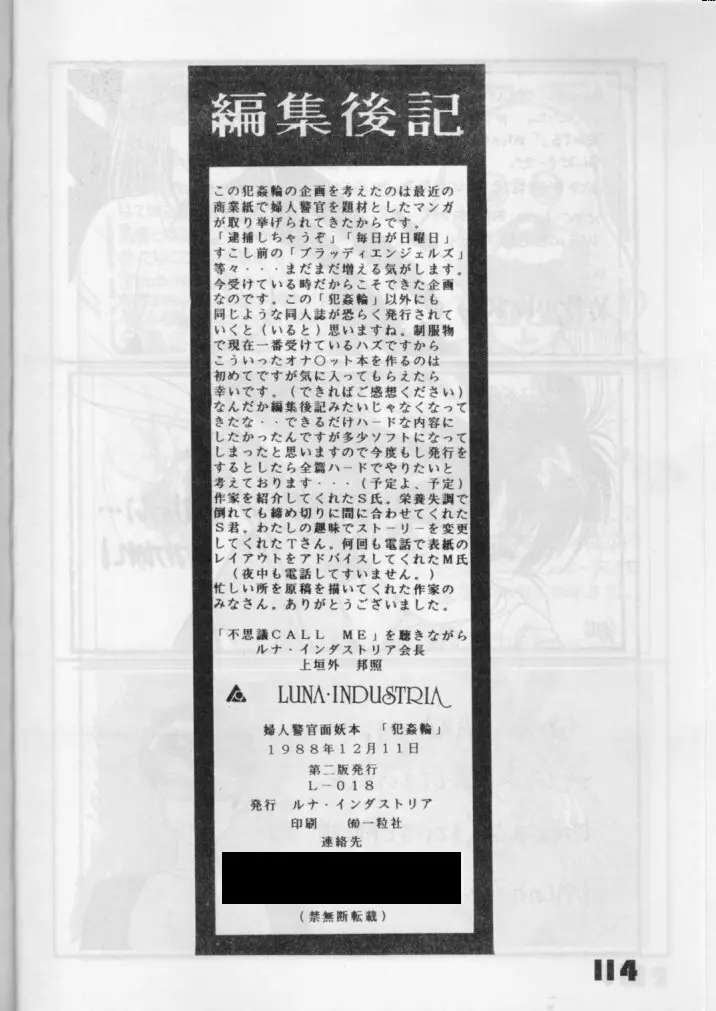 編集後記
この犯姦輪の企画を考えたのは最近の
商業紙で婦人警官を題材としたマンガ
が取り挙げられてきたからです。
「逮捕しちゃうぞ」「毎日が日曜日」
すこし前の「ブラッディエンジェルズ」
等々・・・まだまだ増える気がします。
今受けている時だからこそできた企画
なのです。この「犯姦輪」以外にも
同じような同人誌が恐らく発行されて
いくと(いると)思いますね。制服物
で現在一番受けているハズですから
こういったオナ○ット本を作るのは
初めてですが気に入ってもらえたら
幸いです。(できればご感想ください)
なんだか編集後記みたいじゃなくなって
きたな・・できるだけハードな内容に
したかったんですが多少ソフトになって
しまったと思いますので今度もし発行を
するとしたら全篇ハードでやりたいと
考えております・・・(予定よ、予定)
作家を紹介してくれたS氏。栄養失調で
倒れても締め切りに間に合わせてくれた
S君。わたしの趣味でストーリーを変更
してくれたTさん。何回も電話で表紙の
レイアウトをアドバイスしてくれたM氏
(夜中も電話してすいません。)
忙しい所を原稿を描いてくれた作家の
みなさん。ありがとうございました。
「不思議CALL ME」を聴きながら
ルナ・インダストリア会長
上垣外 邦照
LUNA・INDUSTRIA
婦人警官面妖本 「犯姦輪」
1988年12月11日
第二版発行
L-018
発行 ルナ・インダストリア
印刷 ㈲一粒社
連絡先
(禁無断転載)
114